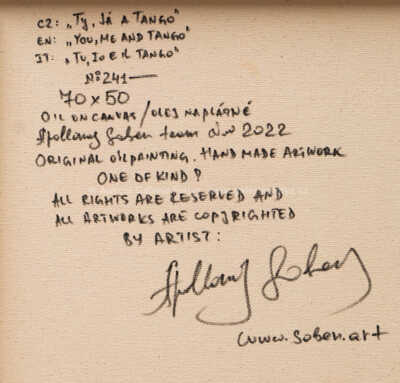 CZ: „Ty, Já A TANGO"
EN: „YOU, ME AND TANGO"
IT: „TU, IO E IL TANGO"
Nº 241—
70 x 50
OIL ON CANVAS / OLEJ NA PLÁTNĚ
Apollonas Soben team 2022
ORIGINAL OILPAINTING. HAND MADE ARTWORK
ONE OF KIND?
ALL RIGHTS ARE RESERVED AND
ALL ARTWORKS ARE COPYRIGHTED
BY ARTIST:
Apollonas Soben
www.soben.art